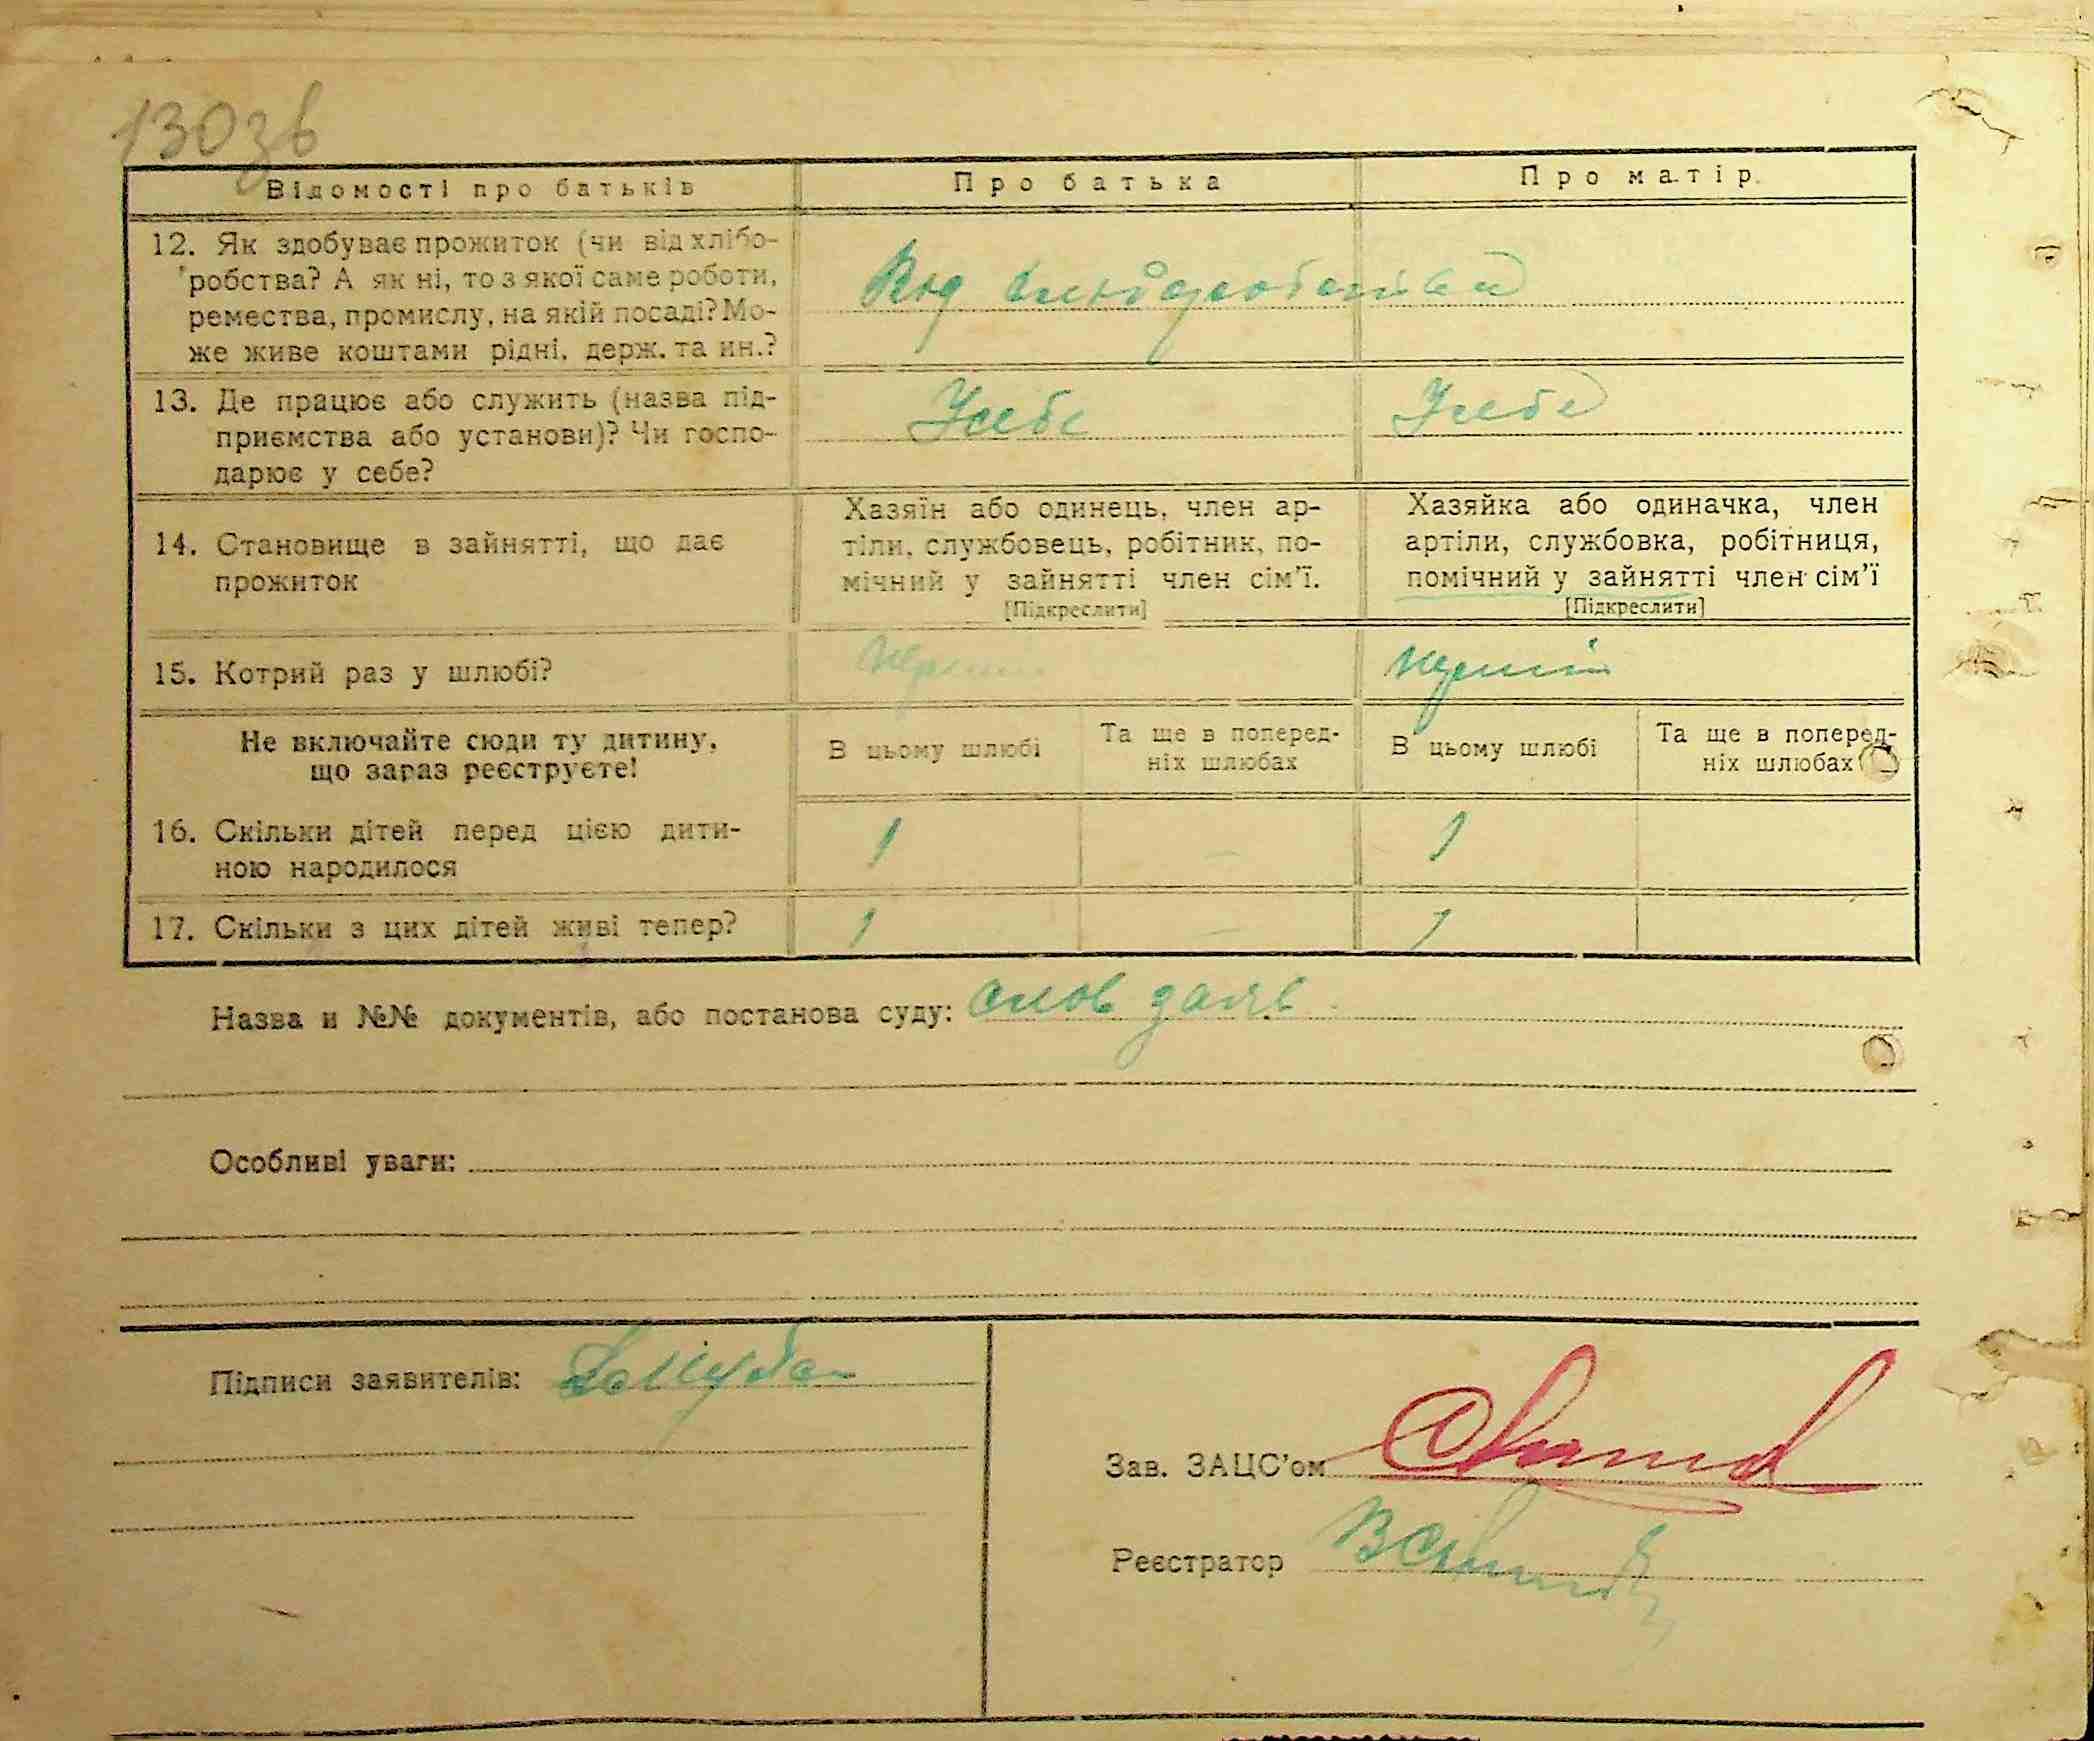 130зв
Відомості про батьків
Про батька
Про матір
12. Як здобуває прожиток (чи від хлібо-
робства? А як ні, то з якої саме роботи,
ремества, промислу, на якій посаді? Мо-
же живе коштами рідні, держ. та ин.?
Від хліборобства
13. Де працює або служить (назва під-
приємства або установи)? Чи госпо-
дарює у себе?
У себе
У себе
14. Становище в зайнятті, що дає
прожиток
Хазяїн або одинець, член ар-
тіли, службовець, робітник, по-
мічний у зайнятті член сім'ї.
[Підкреслити]
Хазяйка або одиначка, член
артіли, службовка, робітниця,
помічний у зайнятті член сім'ї
[Підкреслити]
15. Котрий раз у шлюбі?
перший
перший
Не включайте сюди ту дитину,
що зараз реєструєте!
В цьому шлюбі
Та ще в поперед-
ніх шлюбах
В цьому шлюбі
Та ще в поперед-
ніх шлюбах
16. Скільки дітей перед цією дити-
ною народилося
1
—
1
17. Скільки з цих дітей живі тепер?
1
—
1
Назва и №№ документів, або постанова суду: слов заяв.
Особливі уваги:
Підписи заявителів:
Зав. ЗАЦС'ом
Реєстратор